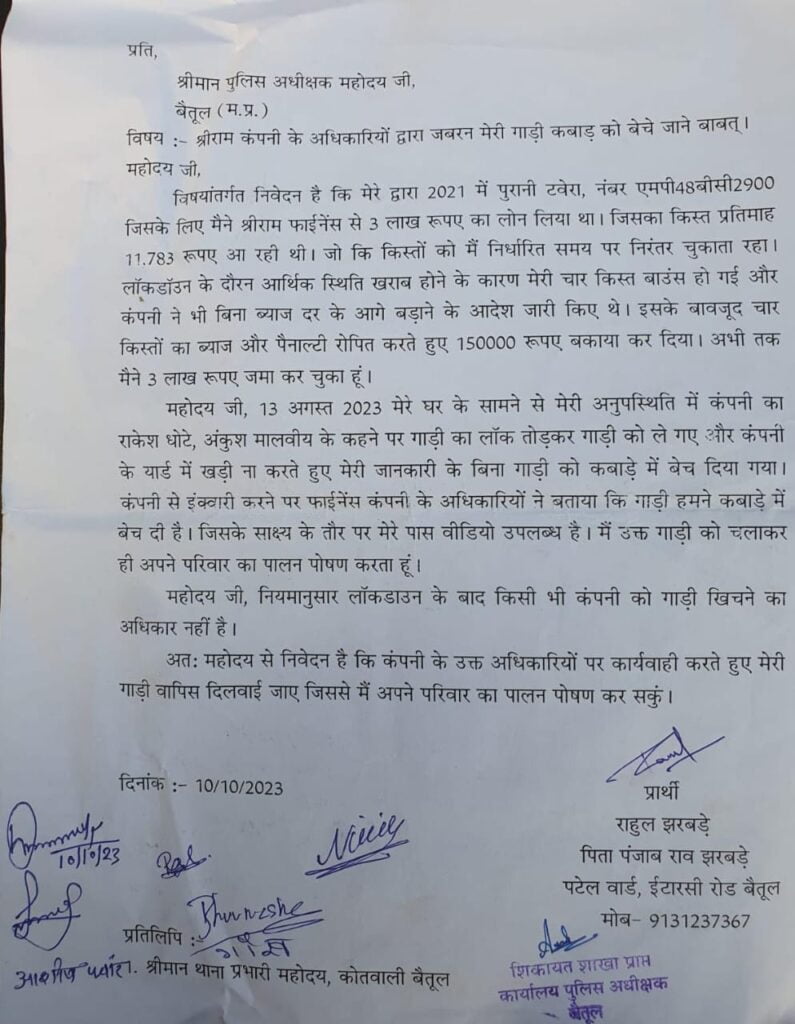 प्रति,
श्रीमान पुलिस अधीक्षक महोदय जी,
बैतूल (म.प्र.)
विषय :- श्रीराम कंपनी के अधिकारियों द्वारा जबरन मेरी गाड़ी कबाड़ को बेचे जाने बाबत्।
महोदय जी,
विषयांतर्गत निवेदन है कि मेरे द्वारा 2021 में पुरानी टवेरा, नंबर एमपी48बीसी2900
जिसके लिए मैने श्रीराम फाईनेंस से 3 लाख रूपए का लोन लिया था। जिसका किस्त प्रतिमाह
11.783 रूपए आ रही थी। जो कि किस्तों को मैं निर्धारित समय पर निरंतर चुकाता रहा।
लॉकडॉउन के दौरन आर्थिक स्थिति खराब होने के कारण मेरी चार किस्त बाउंस हो गई और
कंपनी ने भी बिना ब्याज दर के आगे बड़ाने के आदेश जारी किए थे। इसके बावजूद चार
किस्तों का ब्याज और पैनाल्टी रोपित करते हुए 150000 रूपए बकाया कर दिया। अभी तक
मैने 3 लाख रूपए जमा कर चुका हूं।
महोदय जी, 13 अगस्त 2023 मेरे घर के सामने से मेरी अनुपस्थिति में कंपनी का
राकेश धोटे, अंकुश मालवीय के कहने पर गाड़ी का लॉक तोड़कर गाड़ी को ले गए और कंपनी
के यार्ड में खड़ी ना करते हुए मेरी जानकारी के बिना गाड़ी को कबाड़े में बेच दिया गया।
कंपनी से इंक्वारी करने पर फाईनेंस कंपनी के अधिकारियों ने बताया कि गाड़ी हमने कबाड़े में
बेच दी है। जिसके साक्ष्य के तौर पर मेरे पास वीडियो उपलब्ध है। मैं उक्त गाड़ी को चलाकर
ही अपने परिवार का पालन पोषण करता हूं।
महोदय जी, नियमानुसार लॉकडाउन के बाद किसी भी कंपनी को गाड़ी खिचने का
अधिकार नहीं है।
अत: महोदय से निवेदन है कि कंपनी के उक्त अधिकारियों पर कार्यवाही करते हुए मेरी
गाड़ी वापिस दिलवाई जाए जिससे मैं अपने परिवार का पालन पोषण कर सकुं।
दिनांक :- 10/10/2023
प्रार्थी
राहुल झरबड़े
पिता पंजाब राव झरबड़े
पटेल वार्ड, ईटारसी रोड बैतूल
मोब- 9131237367
10/10/23
प्रतिलिपि :-
1. श्रीमान थाना प्रभारी महोदय, कोतवाली बैतूल
शिकायत शाखा प्राप्त
कार्यालय पुलिस अधीक्षक
बैतूल